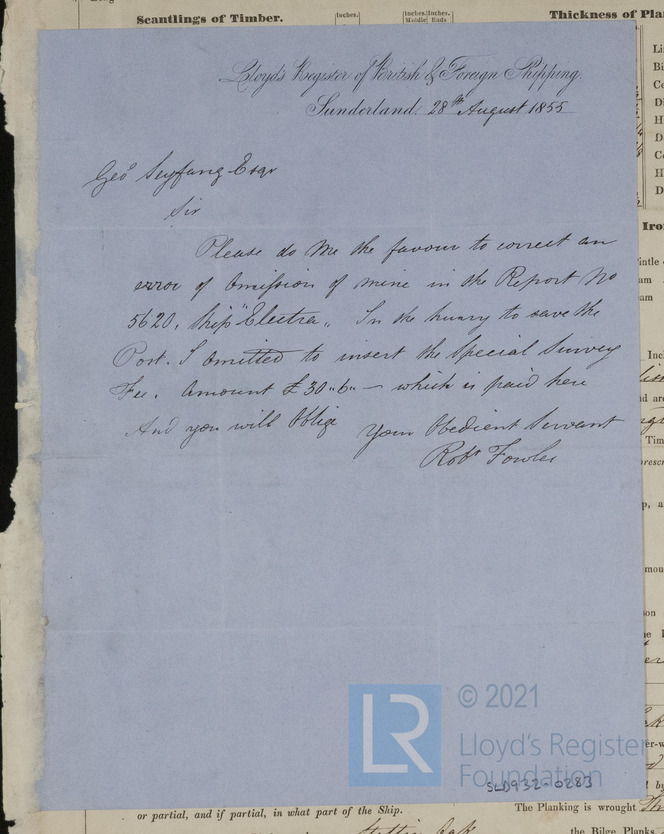 Scantlings of Timber.
Inches.
Inches. Inches.
Middle Ends
Thickness of Pla
Lloyd's Register of British & Foreign Shipping.
Sunderland. 28th August 1855
Geo Seyfang Esqr
Sir
Please do me the favour to correct an
error of Omission of mine in the Report No
5620, Ship "Electra". In the hurry to save the
Post. I Omitted to insert the Special Survey
Fee. Amount £30"6"— which is paid here
And you will Oblige Your Obedient Servant
Robt Fowler
Iro
© 2021
LR
Lloyd's Register
Foundation
SLD932-0283
or partial, and if partial, in what part of the Ship.
The Planking is wrought
the Bilge Planks,